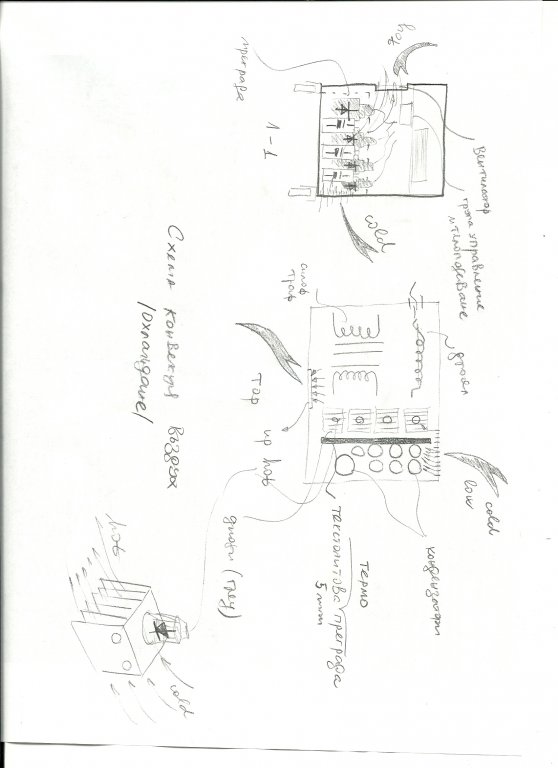 hot
преграда
1-1
Вентилатор
група управление
и телоподаване
cold
Схема конвекция въздух
/Охлаждане/
силов
траф
дросел
top up hot
cold
low
кондензатори
термо
текстолитова преграда
5 mm
диоди
hot
cold